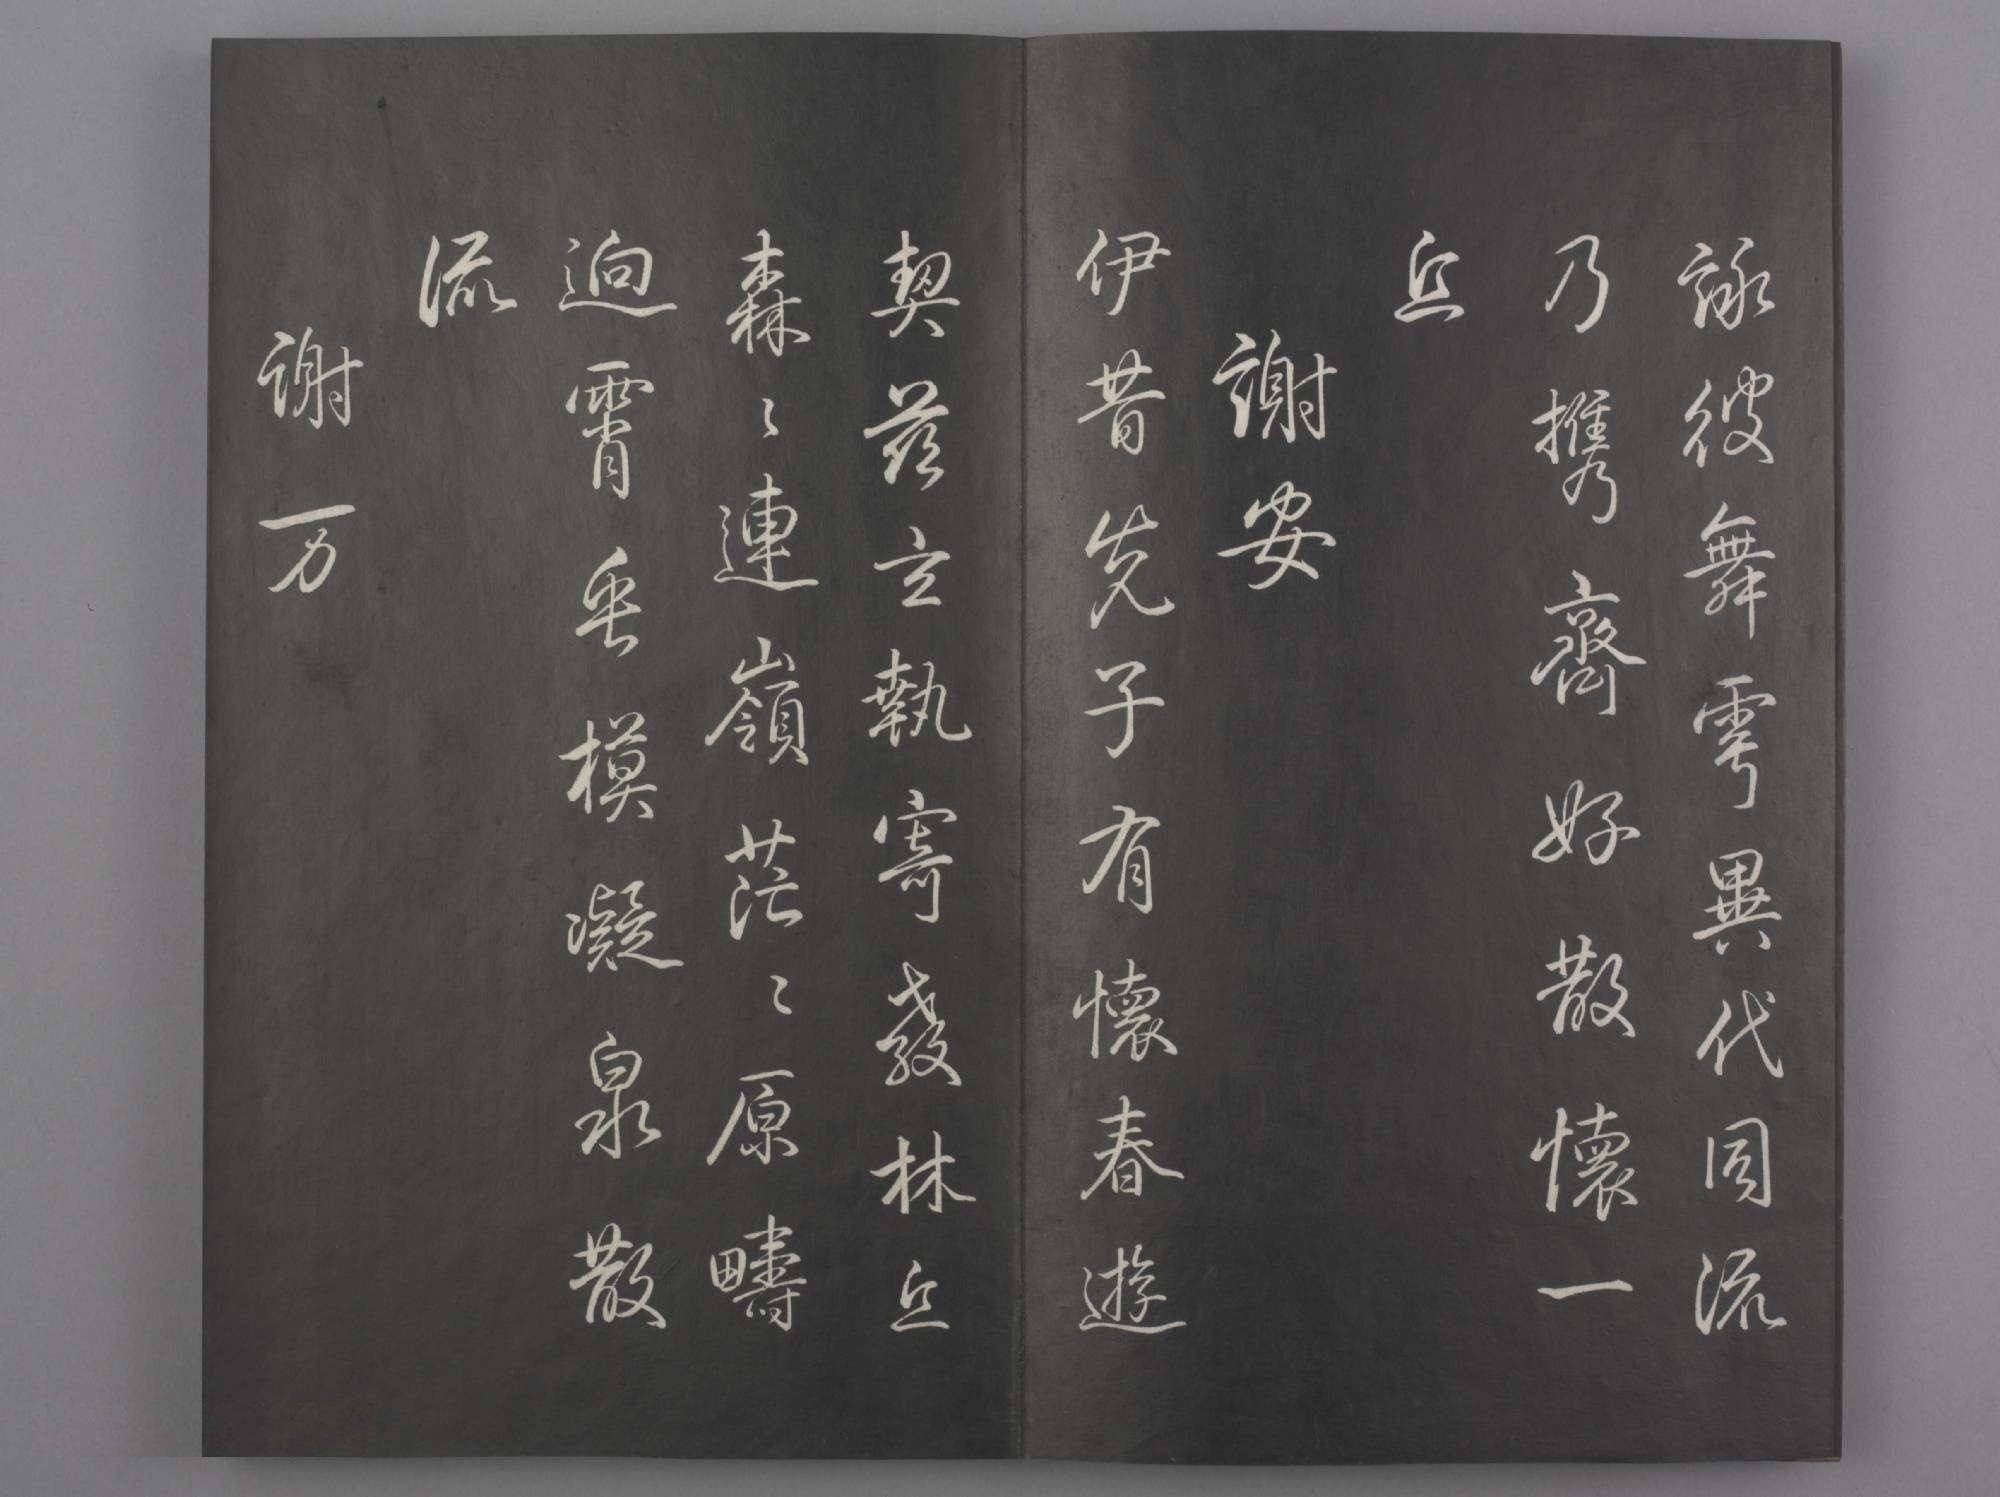 詠彼舞雩異代同流
乃携齊好散懷一
丘
謝安
伊昔先子有懷春遊
契茲言執寄敖林丘
森〻連嶺茫〻原疇
逈霄垂模凝泉散
流
謝万